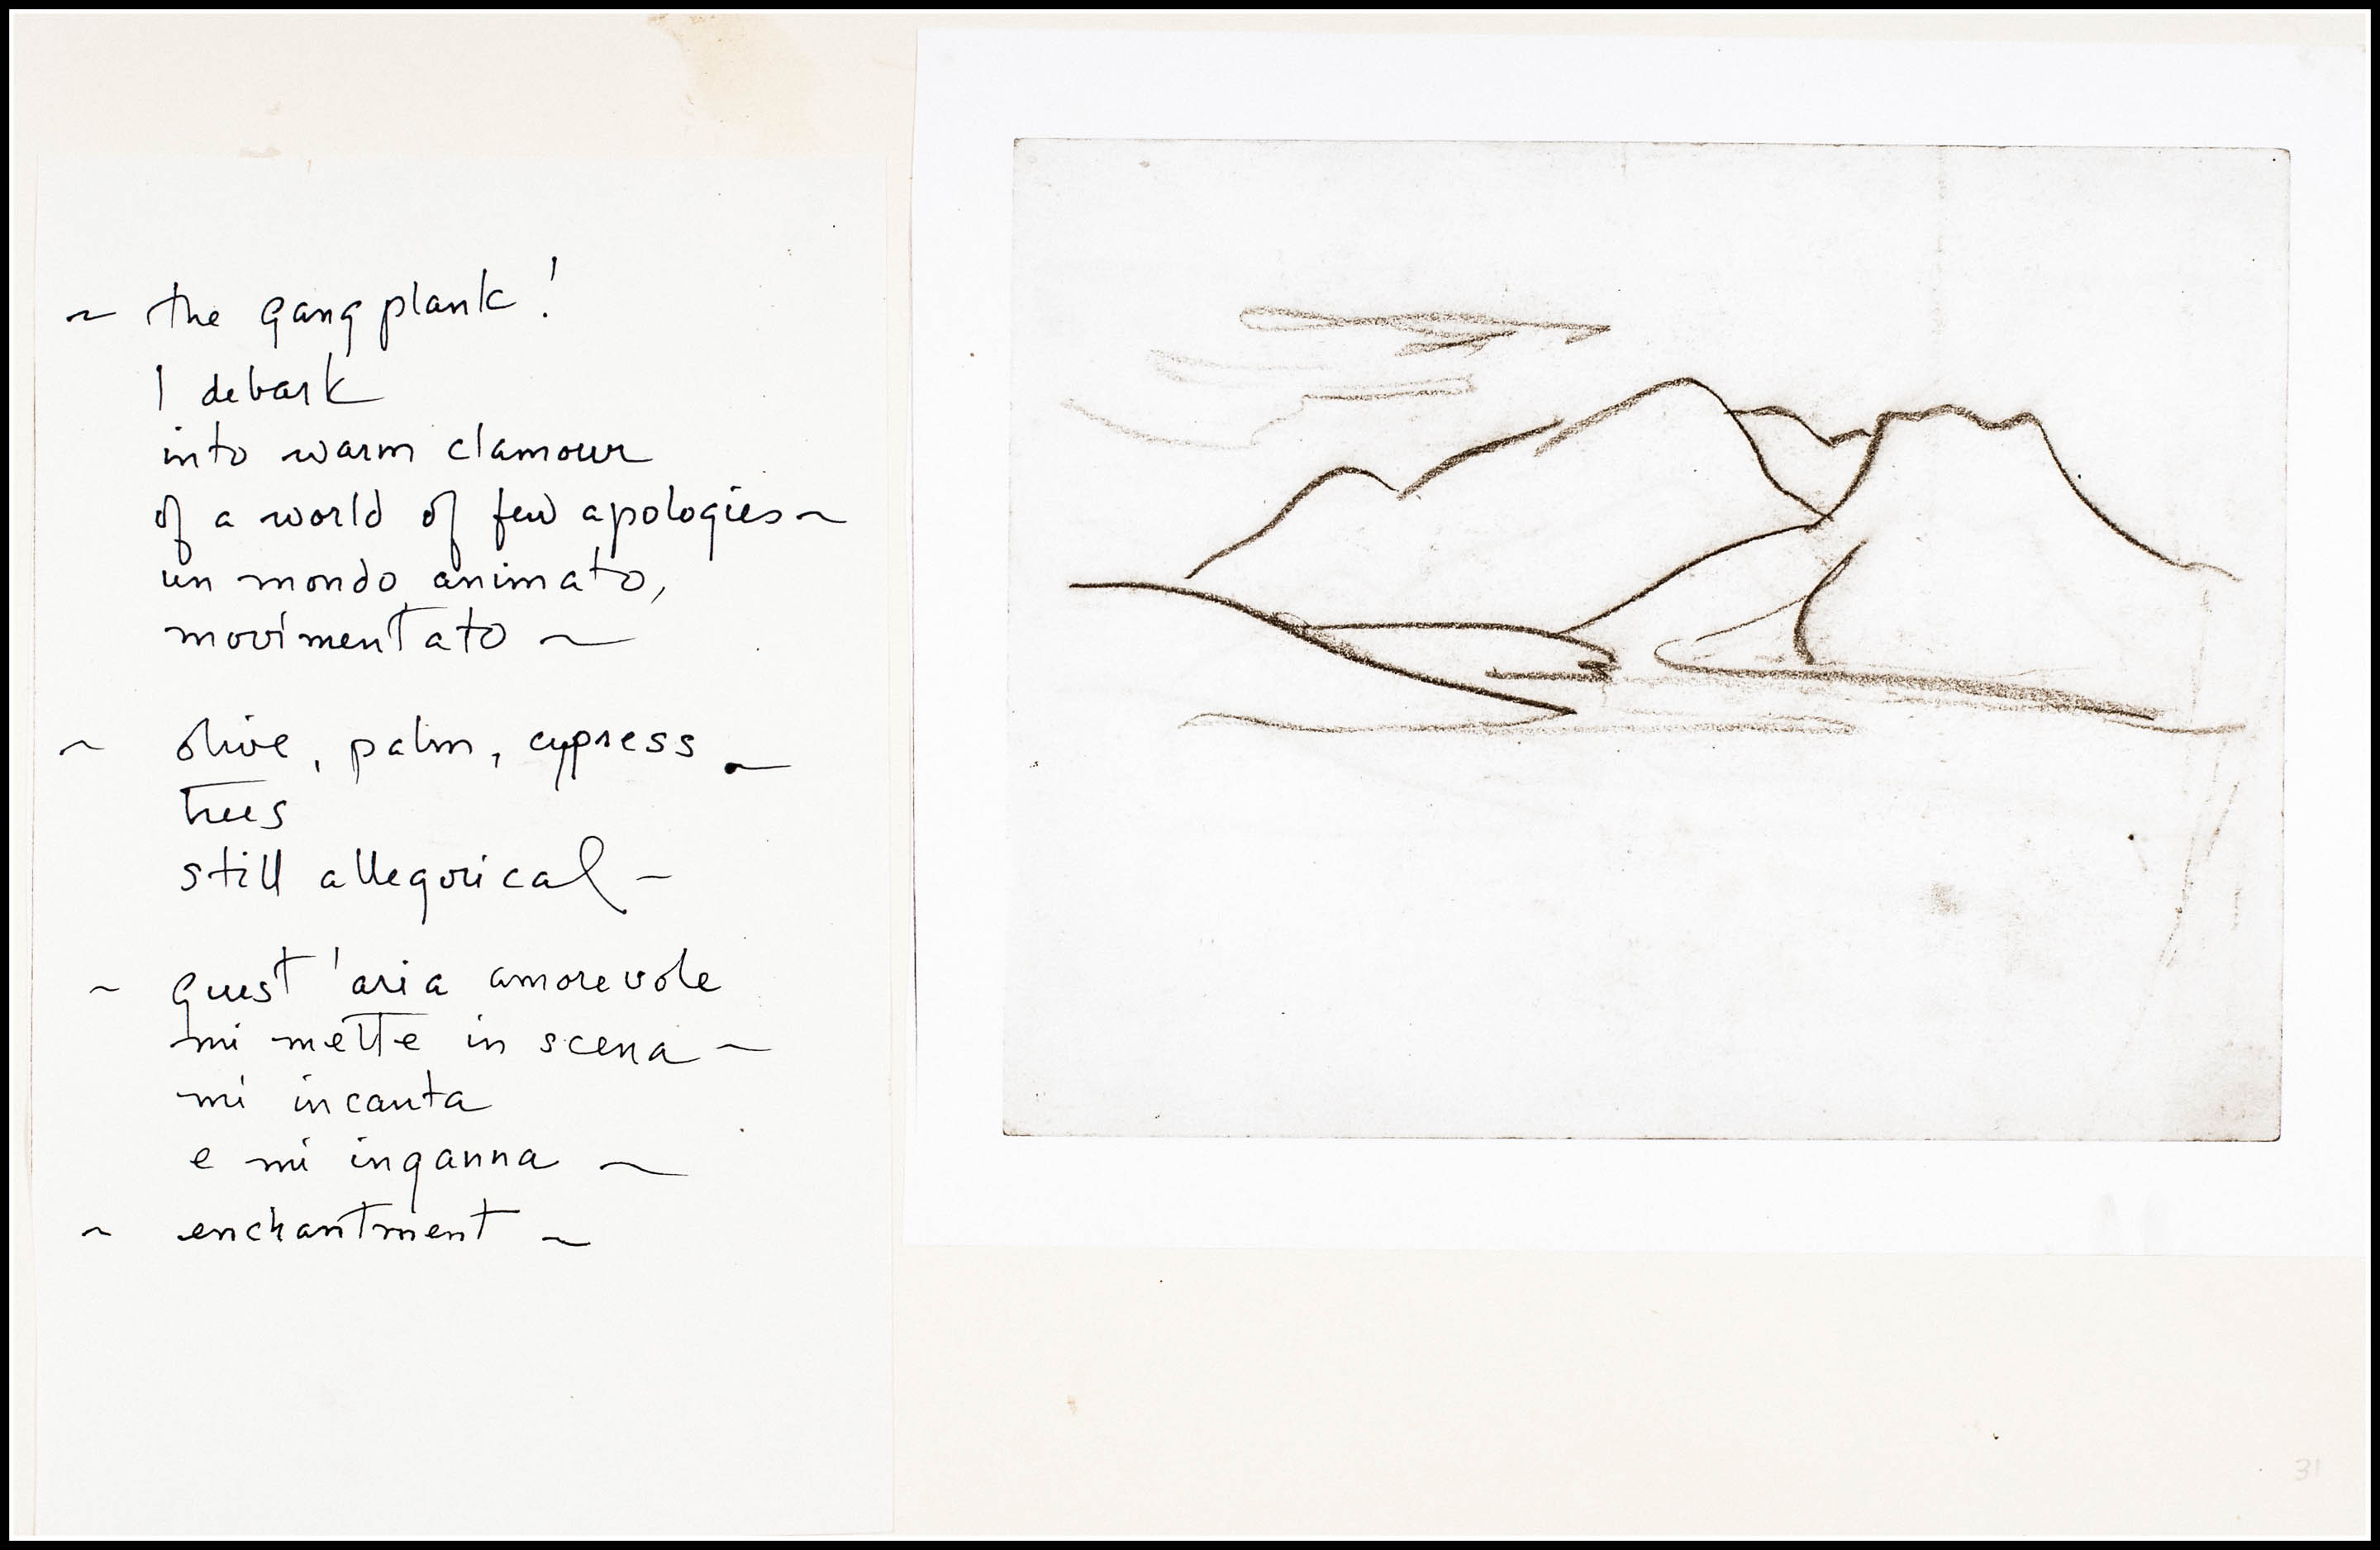 ~ the gangplank!
I debark
into warm clamour
of a world of few apologies ~
un mondo animato,
movimentato ~
~ olive, palm, cypress ~
trees
still allegorical ~
~ quest'aria amorevole
mi mette in scena ~
mi incanta
e mi inganna ~
~ enchantment ~
31